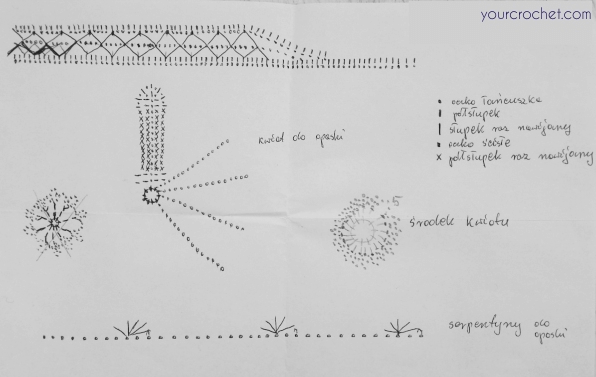 yourcrochet.com
oczko łańcuszka
półsłupek
słupek raz nawijany
oczko ścisłe
x półsłupek raz nawijany
kwiat do opaski
5
środek kwiatu
serpentyny do
opaski